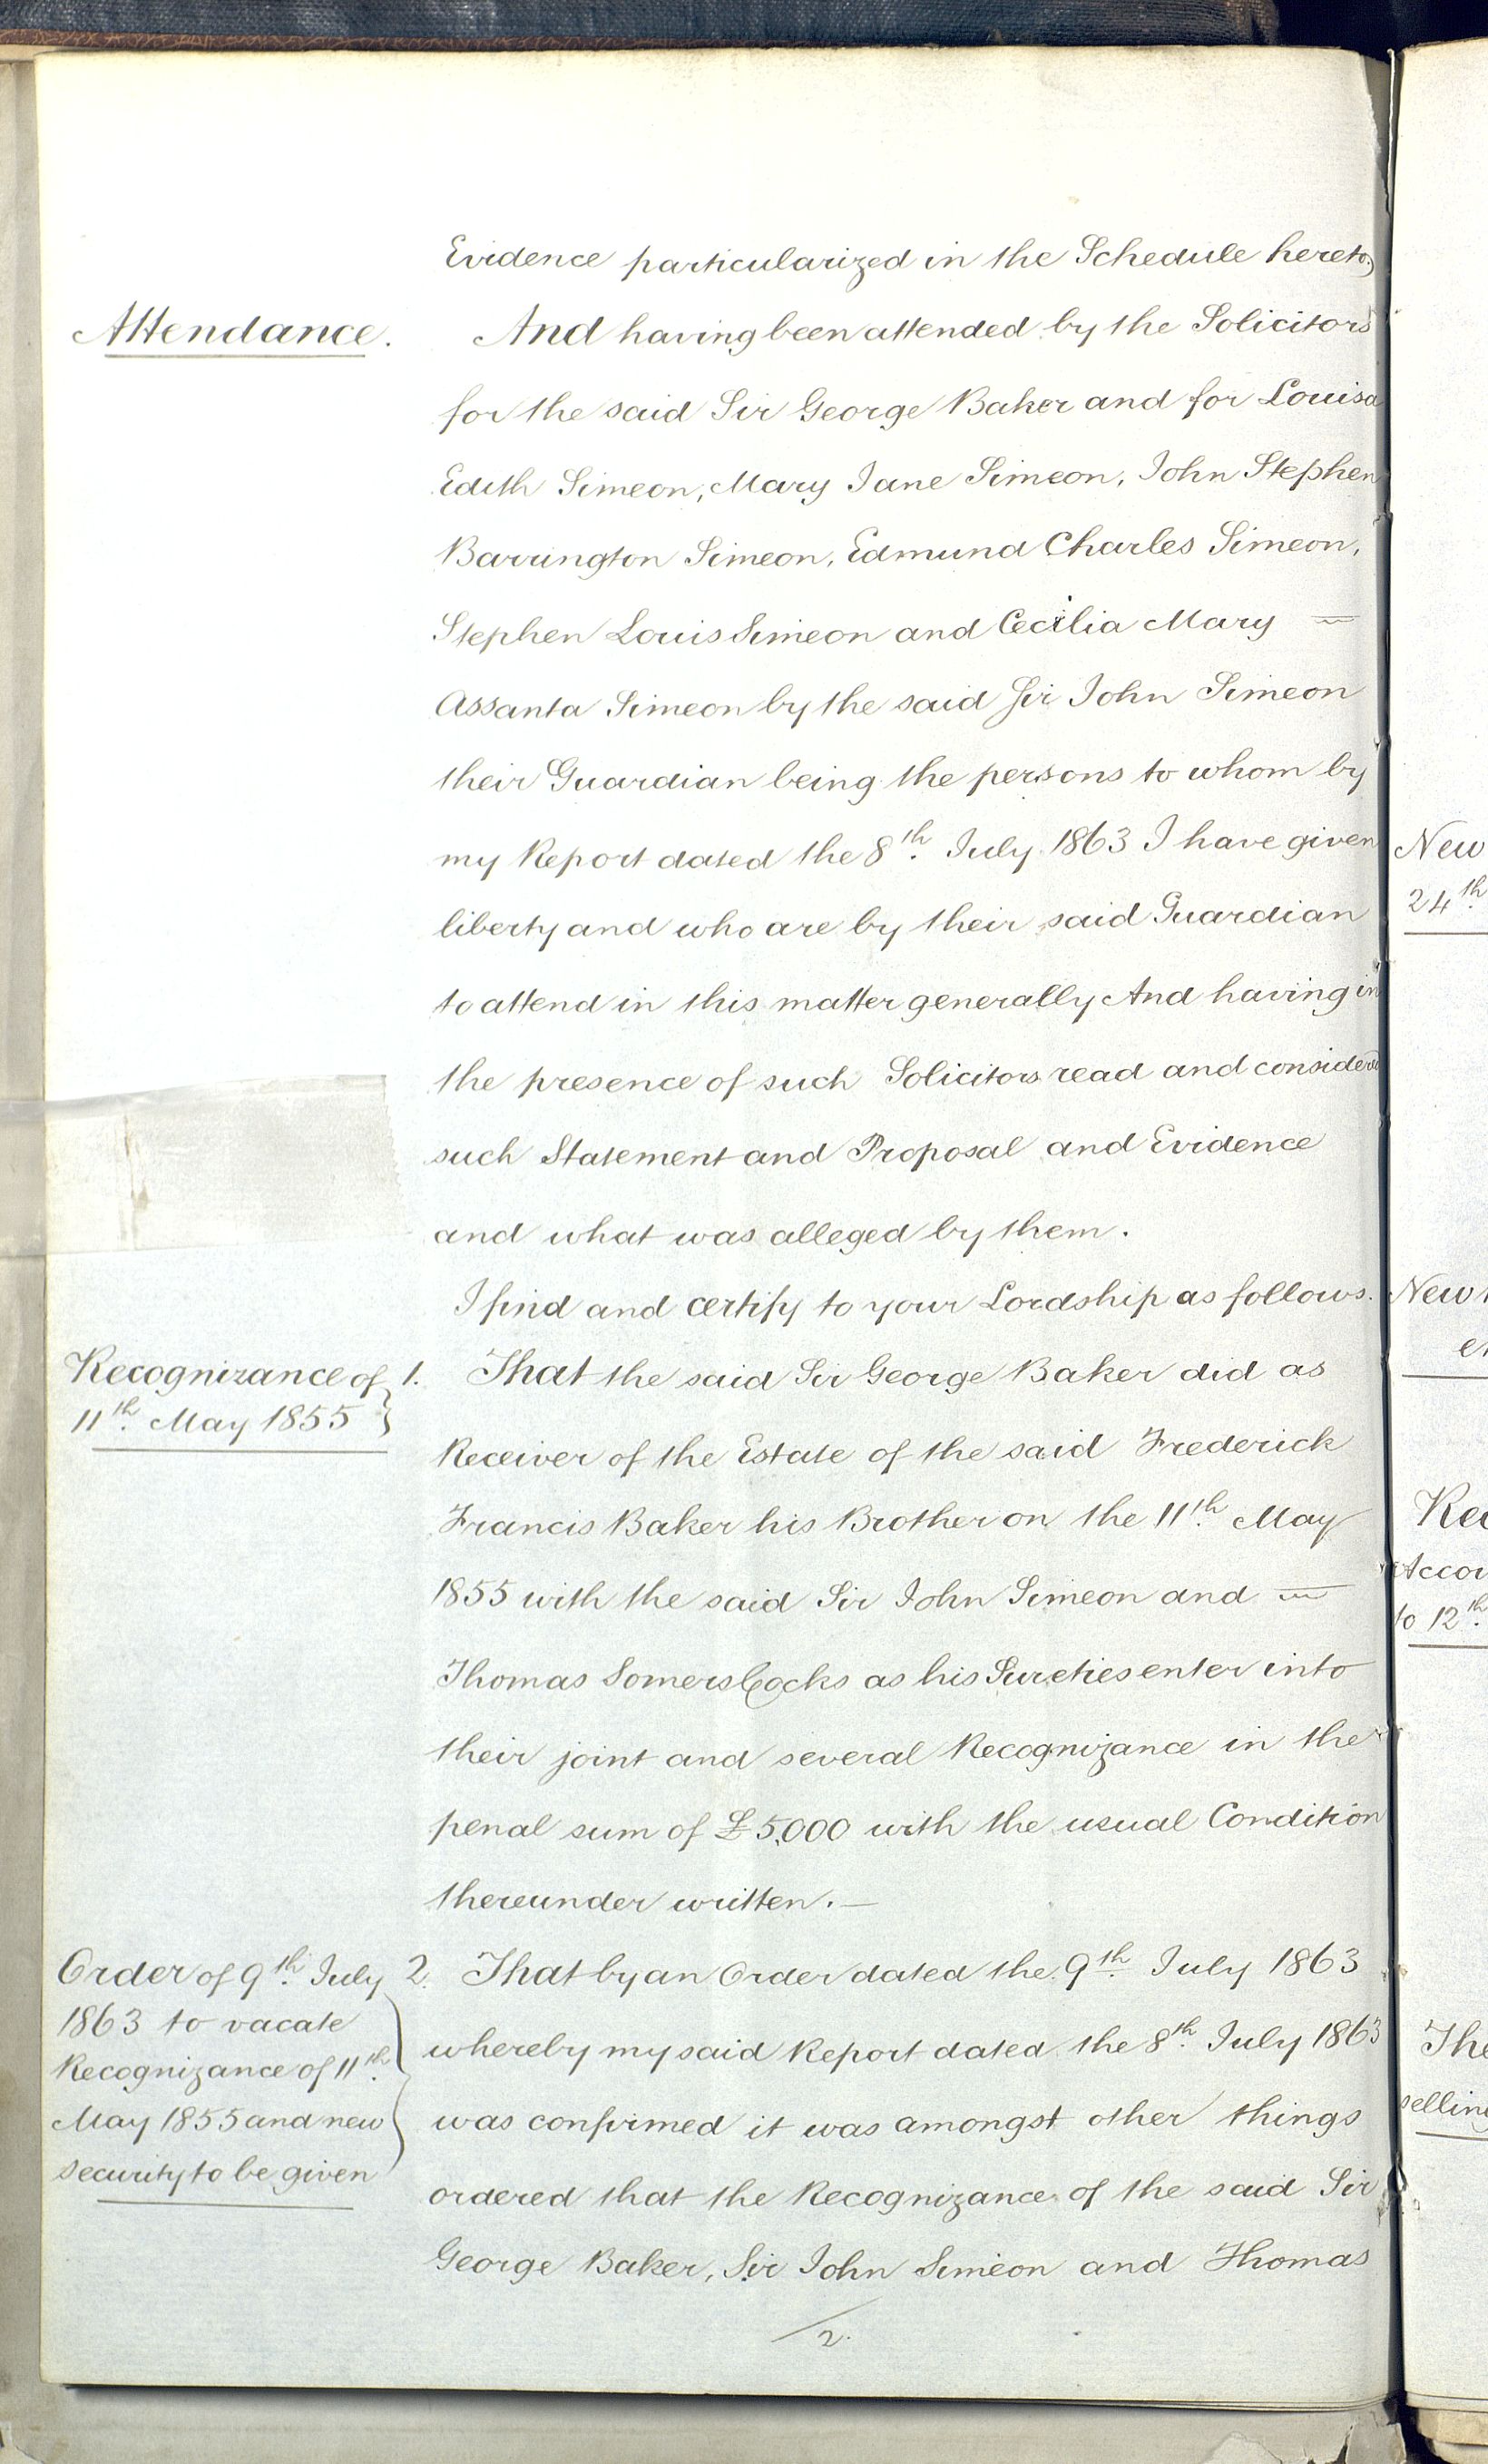 Evidence particularized in the Schedule hereto.)
Attendance.
And having been attended by the Solicitors
for the said Sir George Baker and for Louisa
Edith Simeon, Mary Jane Simeon, John Stephen
Barrington Simeon, Edmund Charles Simeon,
Stephen Louis Simeon and Cecilia Mary
Assanta Simeon by the said Sir John Simeon
their Guardian being the persons to whom by
my Report dated the 8th. July 1863 I have given
liberty and who are by their said Guardian
to attend in this matter generally And having in
the presence of such Solicitors read and considered
such Statement and Proposal and Evidence
and what was alleged by them.
I find and certify to your Lordship as follows.
Recognizance of
11th. May 1855
1. That the said Sir George Baker did as
Receiver of the Estate of the said Frederick
Francis Baker his Brother on the 11th. May
1855 with the said Sir John Simeon and
Thomas Somers Cocks as his Sureties enter into
their joint and several Recognizance in the
penal sum of £5,000 with the usual Condition
thereunder written.—
Order of 9th. July
1863 to vacate
Recognizance of 11th.
May 1855 and new
security to be given
2. That by an Order dated the 9th. July 1863
whereby my said Report dated the 8th. July 1863
was confirmed it was amongst other things
ordered that the Recognizance of the said Sir
George Baker, Sir John Simeon and Thomas
2.
New
24th.
New
Accou
to 12th.
The
selling